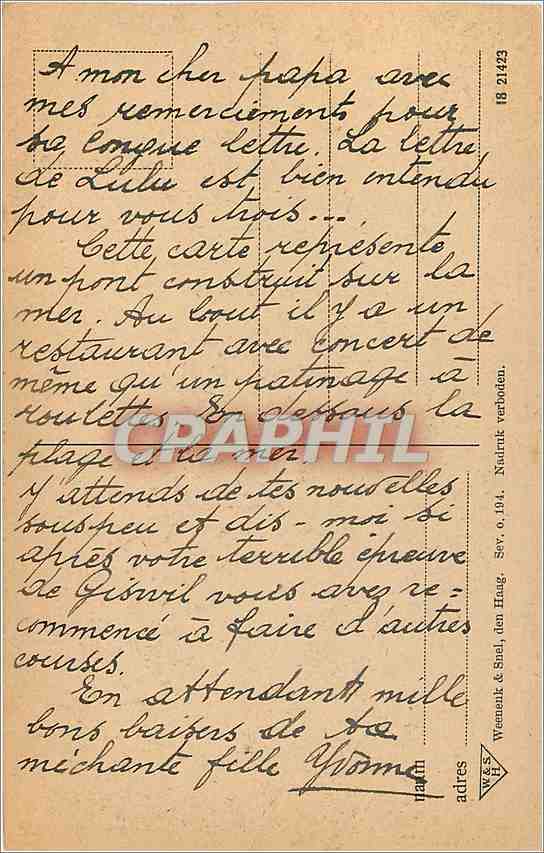 A mon cher papa avec
mes remerciements pour
sa longue lettre. La lettre
de Lulu est bien entendu
pour vous trois...
Cette carte représente
un pont construit sur la
mer. Au bout il y a un
restaurant avec concert de
même qu'un patinage à
roulettes. En dessous la
plage à la mer.
J'attends de tes nouvelles
sous peu et dis-moi si
après votre terrible épreuve
de Giswil vous avez re=
commencé à faire d'autres
courses.
En attendant mille
bons baisers de ta
méchante fille Yvonne
CPARPHIL
18 21423
Weenenk & Snel, den Haag. Sev. o. 194. Nadruk verboden.
naam
adres
W & S
H